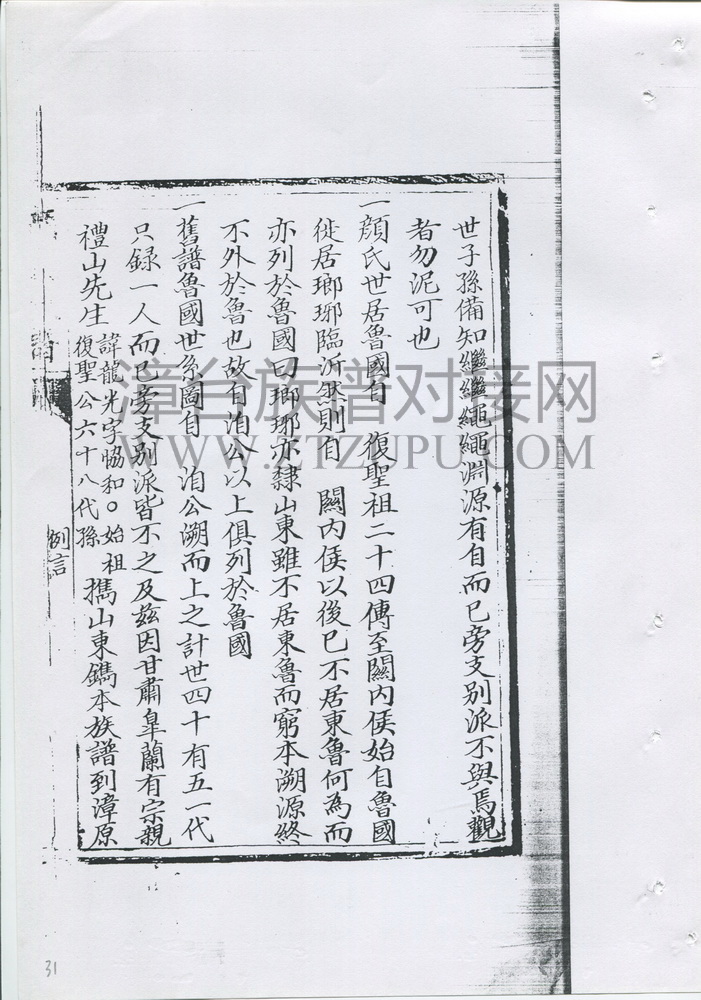 世子孫備知繼繼繩繩淵源有自而已旁支別派不與焉觀
者勿泥可也
一顏氏世居魯國自 復聖祖二十四傳至關內侯始自魯國
徙居瑯琊臨沂然則自 關內侯以後已不居東魯何為而
亦列於魯國曰瑯琊亦隸山東雖不居東魯而窮本溯源終
不外於魯也故自洎公以上俱列於魯國
一舊譜魯國世系圖自 洎公溯而上之計世四十有五一代
只録一人而已旁支別派皆不之及茲因甘肅臯蘭有宗親
禮山先生 諱龍光字協和○始祖
復聖公六十八代孫 攜山東鐫本族譜到漳原
例言
漳台族谱对接网
WWW.ZTZUPU.COM
31